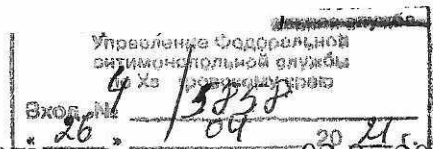 Управление Федеральной
антимонопольной службы
по Хабаровскому краю
Вход. № 4/5858
" 26 " 04 20 21 г.